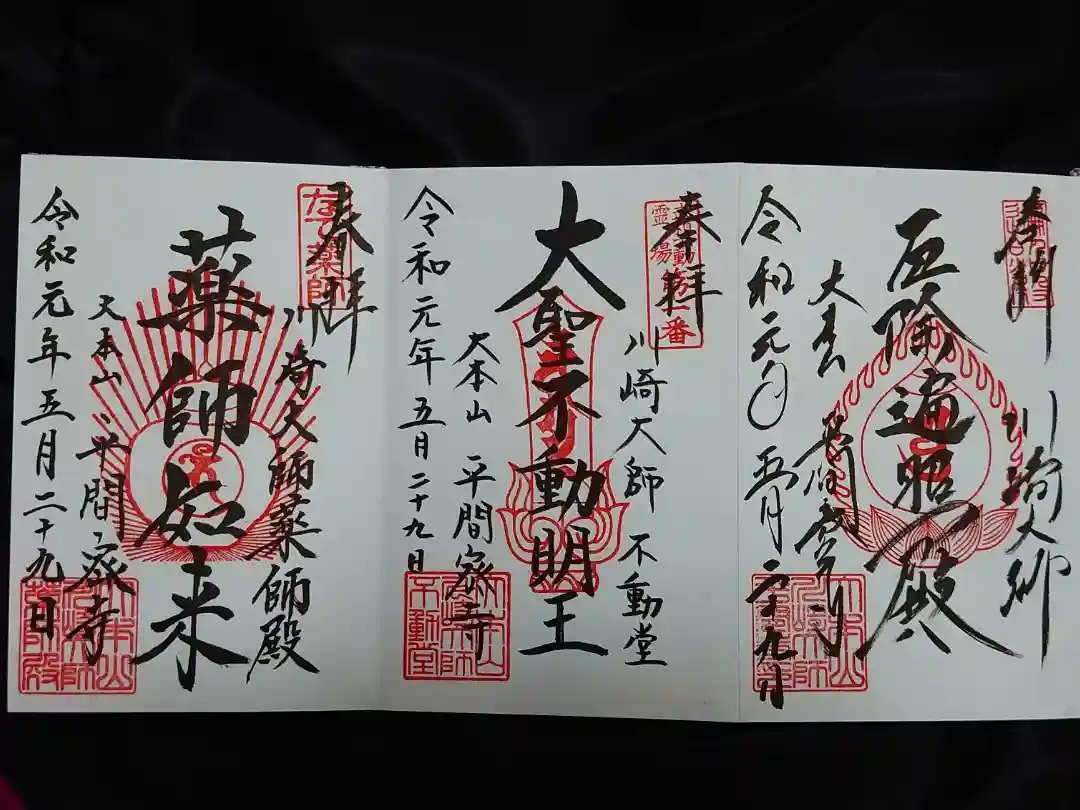 奉拝
川崎大師
厄除遍照殿
大本山
平間寺
令和元年
五月二十九日
奉拝
霊場
一番
川崎大師 不動堂
大聖不動明王
大本山 平間寺
令和元年 五月二十九日
不動堂
奉拝
なで薬師
川崎大師薬師殿
薬師如来
大本山 平間寺
令和元年五月二十九日